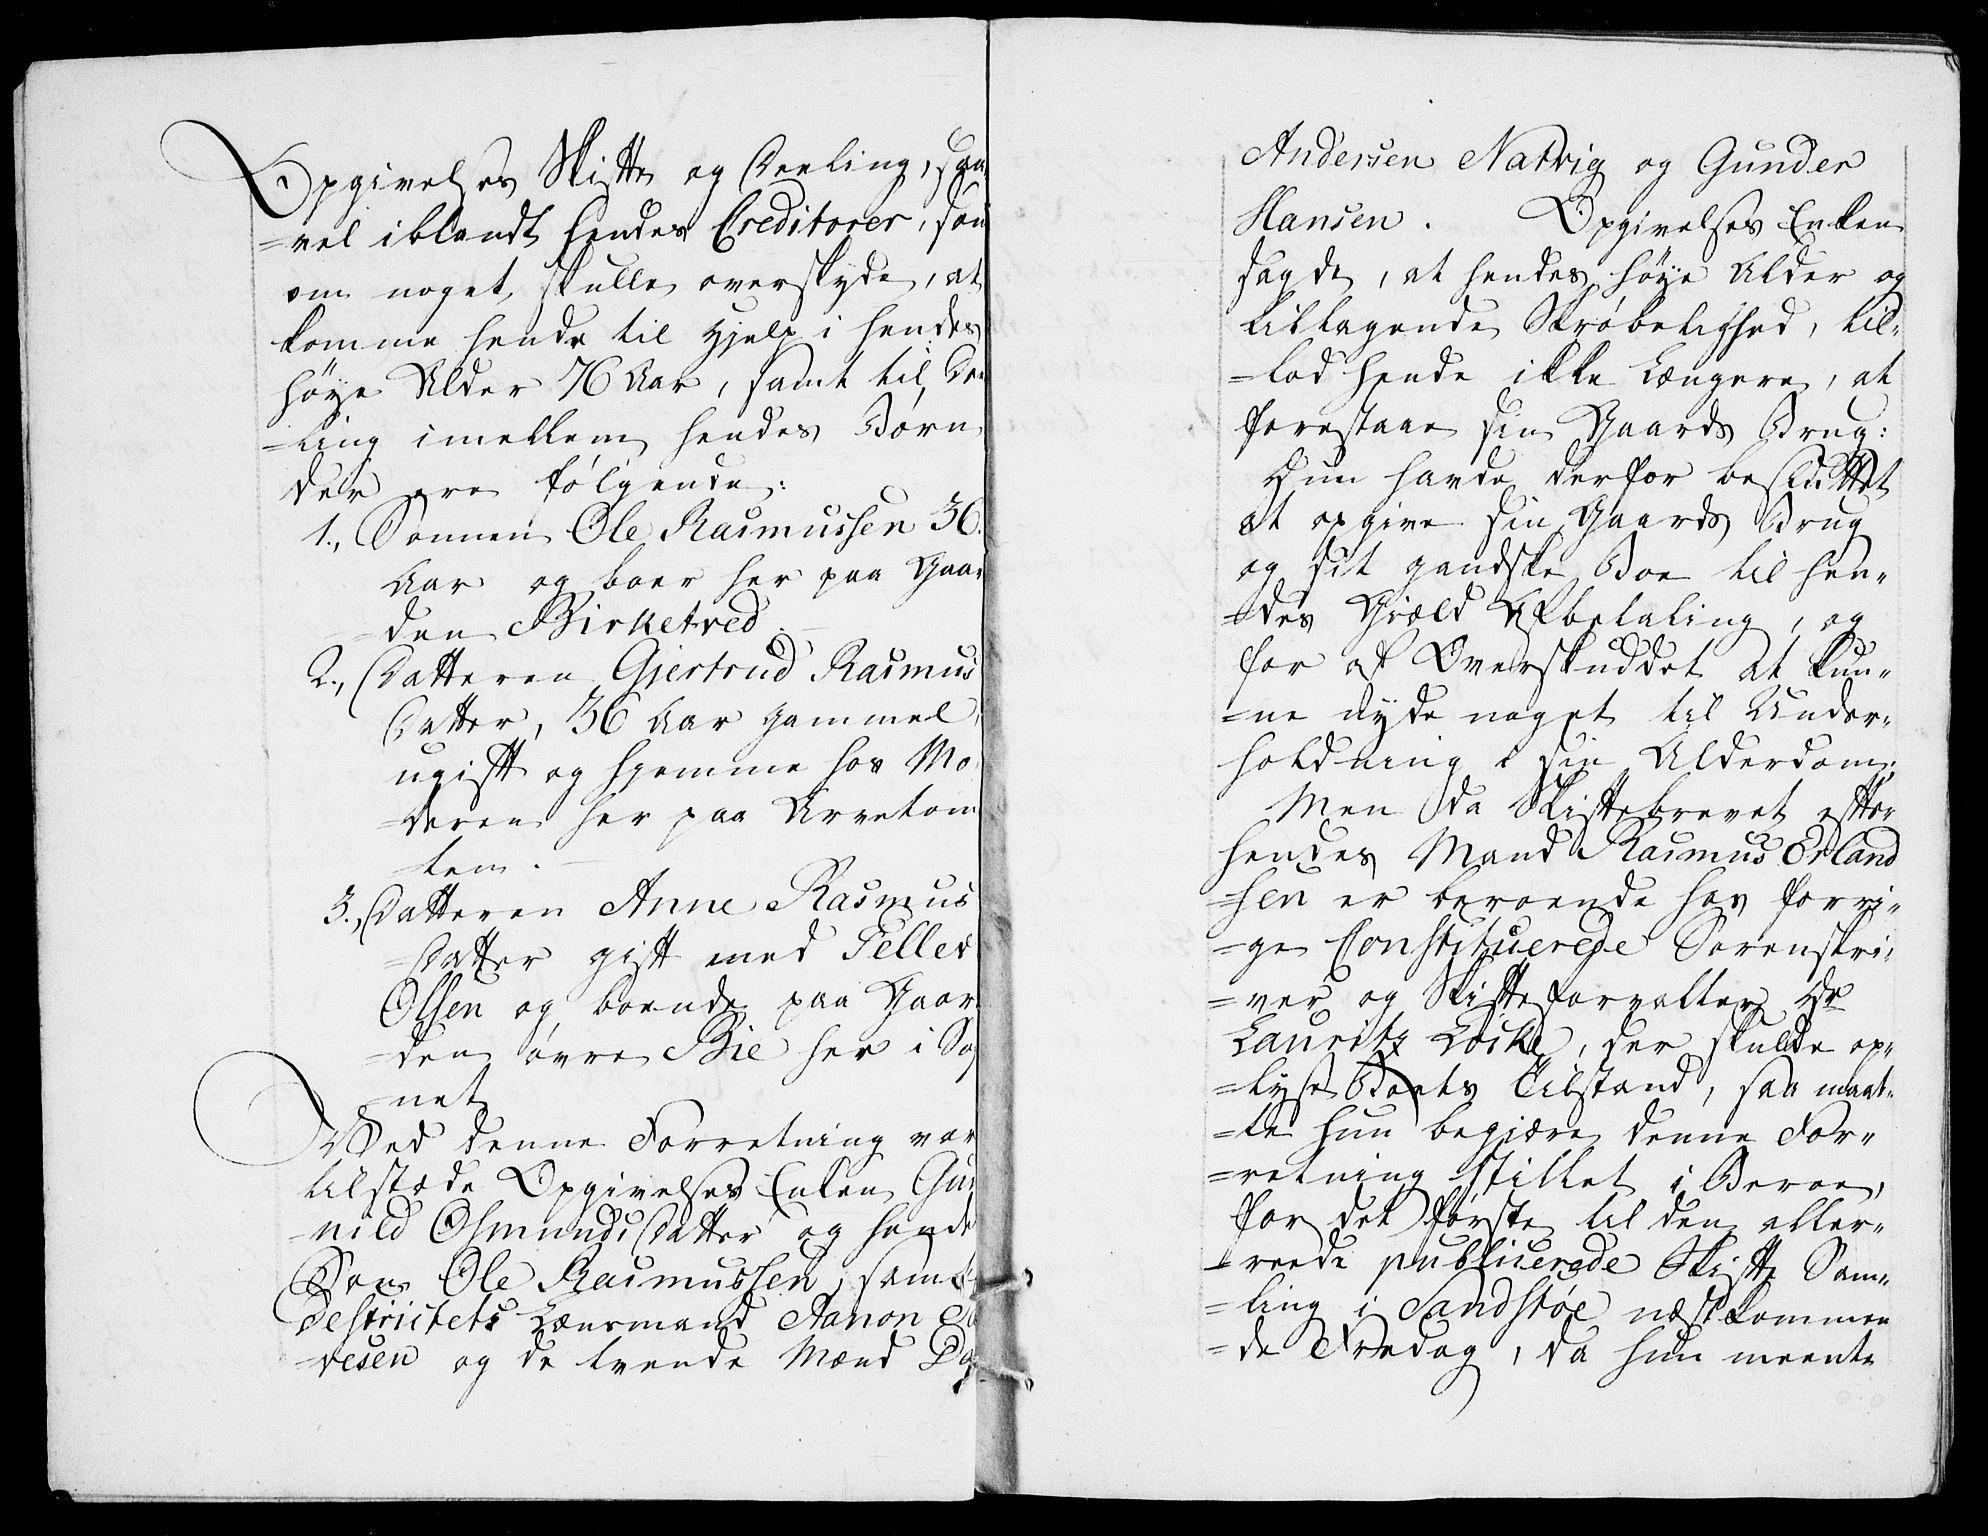 Opgivelses Skifte og Deeling, saa
=vel iblandt hendes Creditorer, som
om noget skulle overskyde, at
komme hende til Hjelp i hendes
høye Alder 76 Aar, samt til Dee
=ling imellem hendes Børn
der ere følgende:
1., Sønnen Ole Rasmussen 36.
Aar og boer her paa Gaar
=den Birketved.
2., Datteren Giertrud Rasmus
Datter, 36 Aar gammel,
ugift og hjemme hos Mo
=deren her paa Arvetom
=ten.
3., Datteren Anne Rasmus
=Datter gift med Tellev
Olsen og boende paa Gaar
=den øvre Bie her i Sog
=net
Ved denne Forretning var
tilstæde Opgivelses Enken Gun
=nild Osmunds Datter og hende
Søn Ole Rasmussen, samt
Destrictets Lænsmand Aanon
=vesen og de tvende Mænd
Andersen Natvig og Gunder
Hansen. Opgivelses Enken
sagde, at hendes høye Alder og
tiltagende Skrøbelighed, til„
=lod hende ikke længere, at
forestaae sin Gaards Brug:
Hun havde derfor besluttet
at opgive sin Gaards Brug
og sit gandske Boe til hen„
=des Giæld Afbetaling, og
for af Overskuddet at kun„
=ne nyde noget til Under„
holdning i sin Alderdom;
Men da Skiftebrevet efter
hendes Mand Rasmus Erland
=sen er beroende hos forri„
=ge Constituerede Sorenskri„
=ver og Skifteforvalter Hr
Lauritz Locke, der skulde op„
=lyse Boets Tilstand, saa maat„
=te hun begjære denne For„
=retning stillet i Beroe,
for det første til den aller„
=reede publicerede Skifte Sam„
=ling i Sandstøe næstkommen
=de Fredag, da hun meente